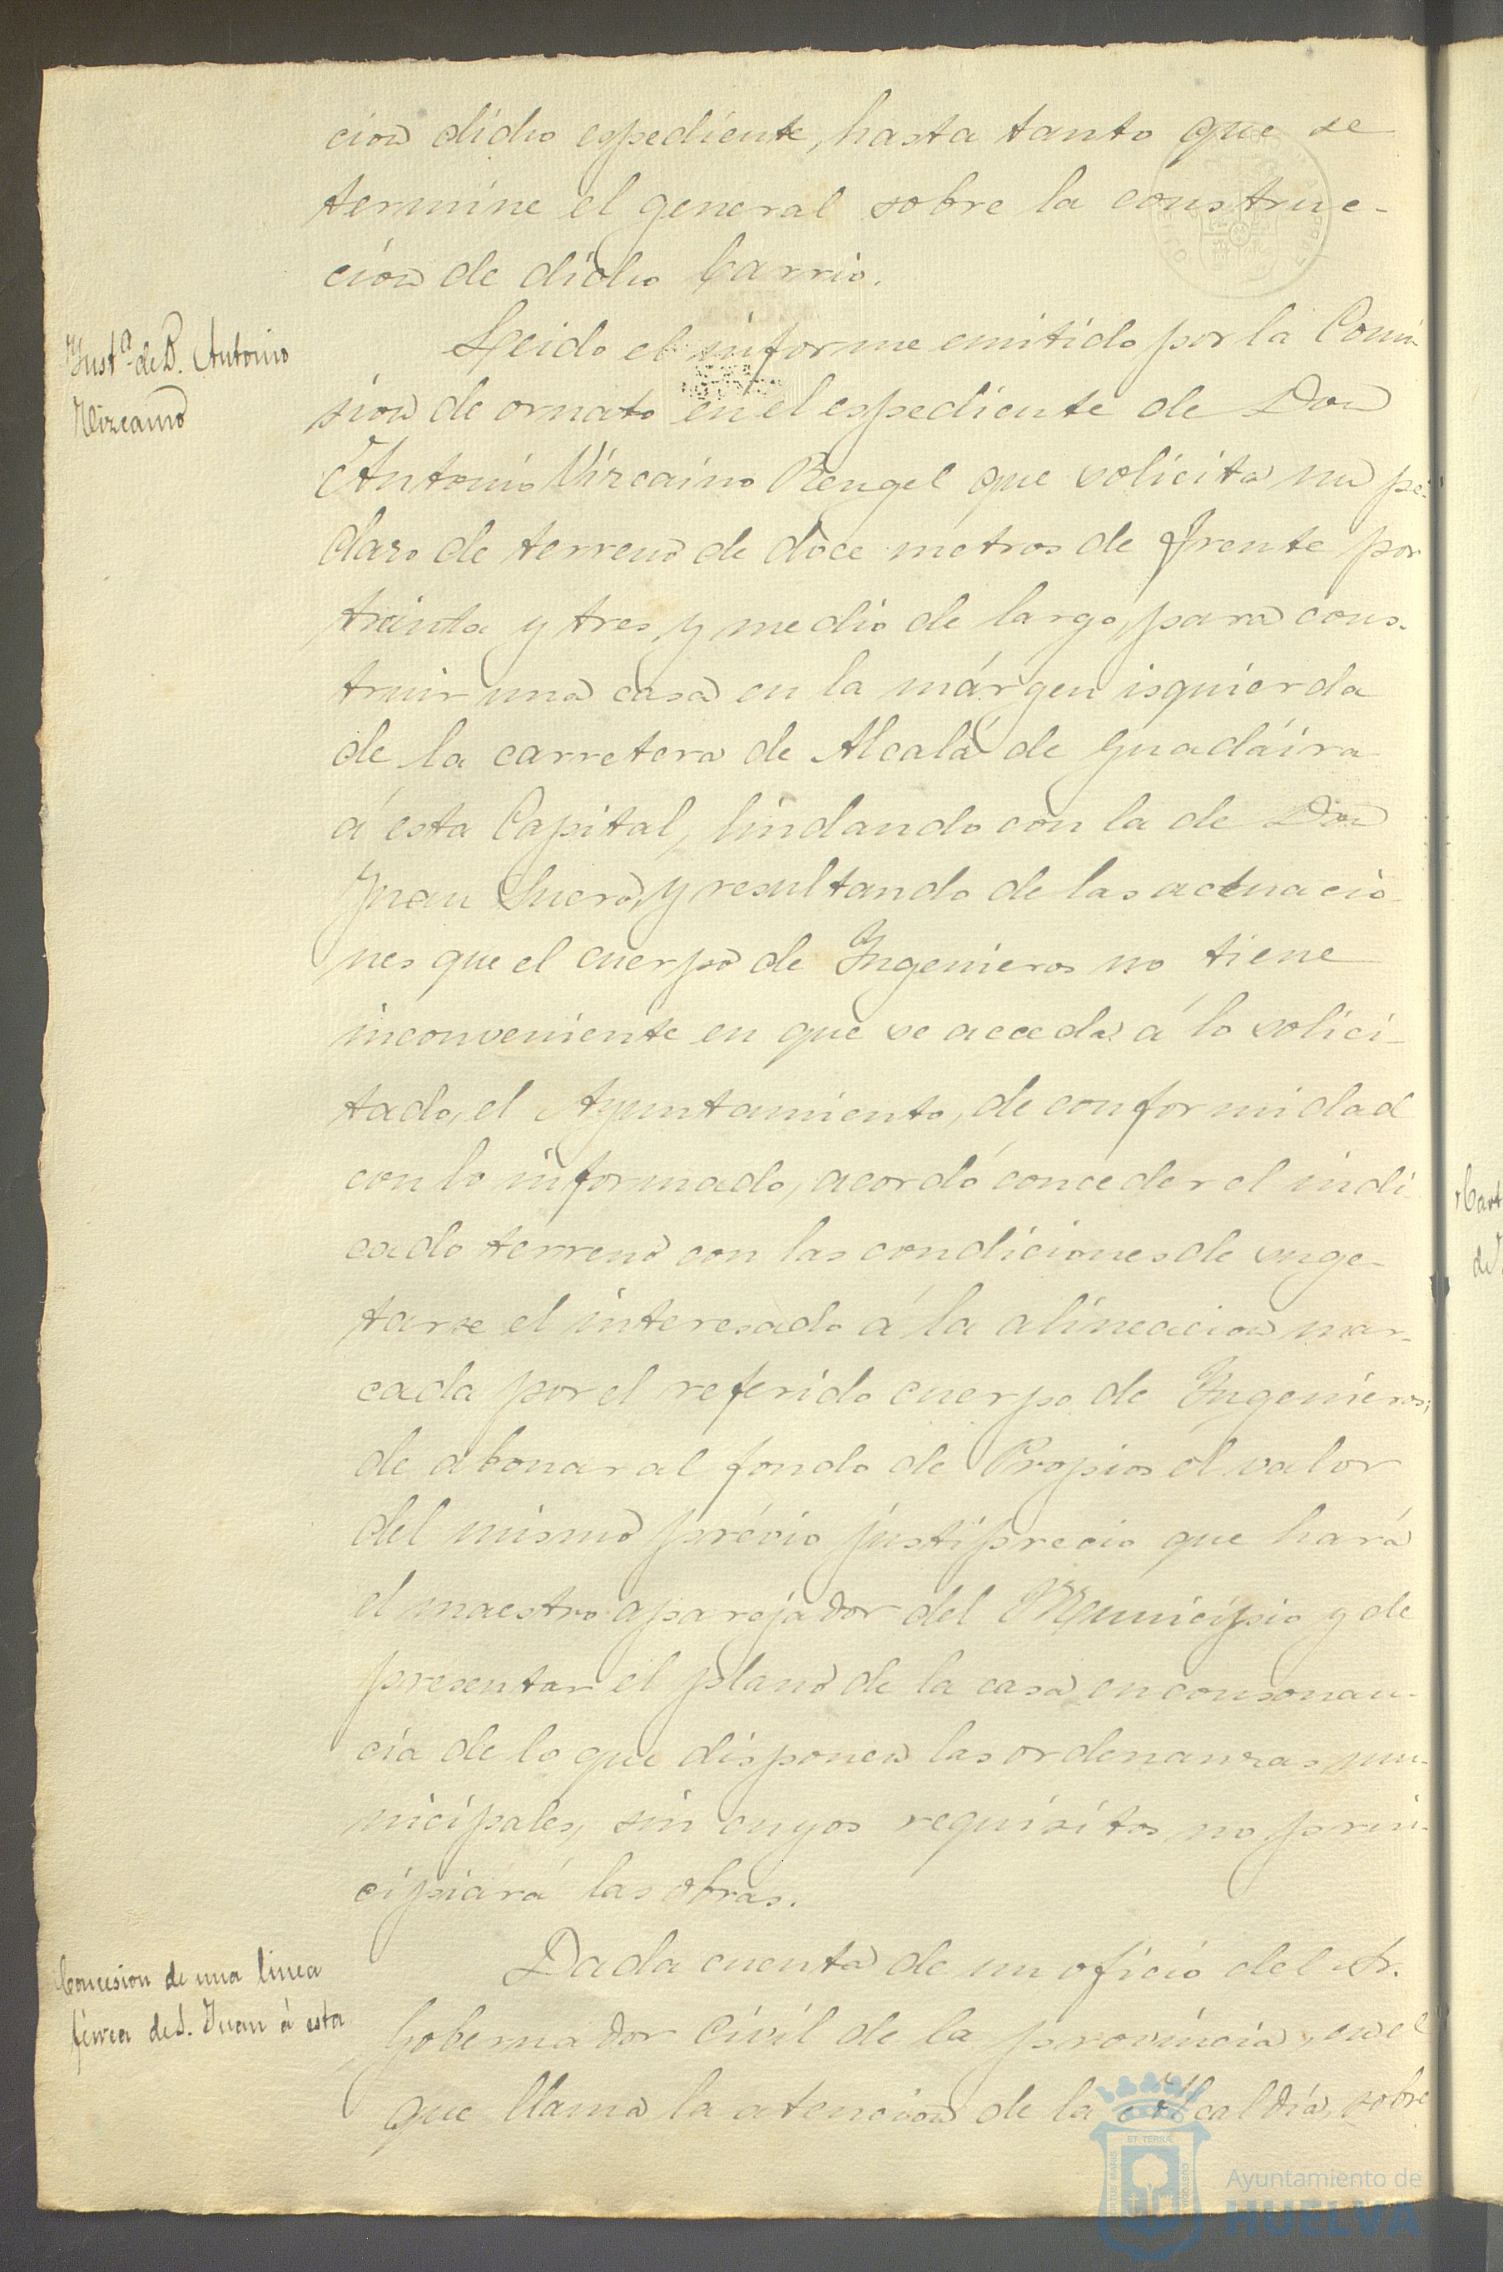 cion dicho espediente, hasta tanto que se
termine el general sobre la construc-
ción de dicho barrio.
Inst.ª de D. Antonio
Vizcaino
Leido el informe emitido por la Comi-
sion de ornato en el espediente de Don
Antonio Vizcaino Rengel que solicita un pe-
dazo de terreno de doce metros de frente por
treinta y tres y medio de largo, para cons-
truir una casa en la márgen isquierda
de la carretera de Alcalá de Guadáira
á esta Capital, lindando con la de Don
Juan Suero, y resultando de las actuacio-
nes que el cuerpo de Ingenieros no tiene
inconveniente en que se acceda á lo solici-
tado, el Ayuntamiento, de conformidad
con lo informado, acordó conceder el indi
cado terreno con las condiciones de suge-
tarse el interesado á la alineacion mar-
cada por el referido cuerpo de Ingenieros;
de abonar al fondo de Propios el valor
del mismo prévio justiprecio que hará
el maestro aparejador del Municipio y de
presentar el plano de la casa en consonan-
cia de lo que disponen las ordenanzas mu-
nicipales, sin cuyos requisitos no prin-
cipiará las obras.
Concesion de una linea
férrea de S. Juan á esta
Dada cuenta de un oficio del Sr.
Gobernador Civil de la provincia, en el
que llama la atencion de la Alcaldía, sobre
Ayuntamiento de
HUELVA